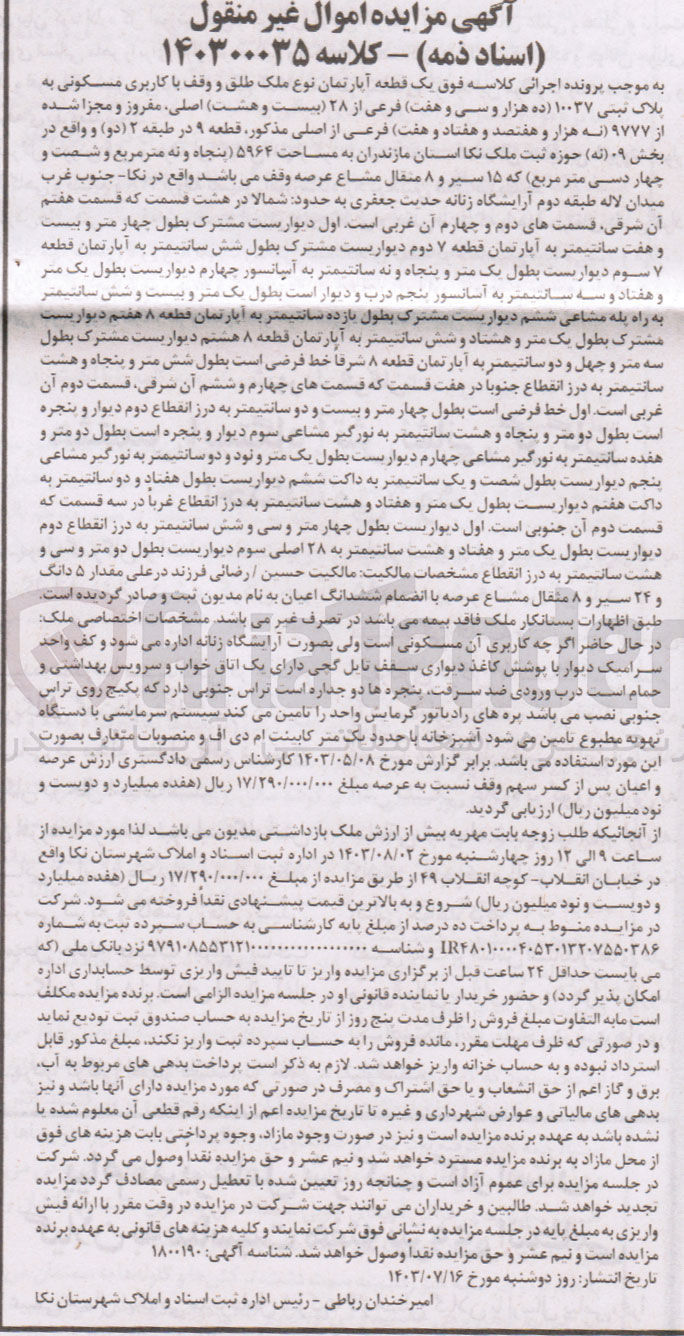 آگهی مزایده اموال غیر منقول
(اسناد ذمه) - کلاسه ۱۴۰۳۰۰۰۳۵
به موجب پرونده اجرائی کلاسه فوق یک قطعه آپارتمان نوع ملک طلق و وقف با کاربری مسکونی به
پلاک ثبتی ۱۰۰۳۷ (ده هزار و سی و هفت) فرعی از ۲۸ (بیست و هشت) اصلی، مفروز و مجزا شده
از ۹۷۷۷ (نه هزار و هفتصد و هفتاد و هفت) فرعی از اصلی مذکور، قطعه ۹ در طبقه ۲ (دو) و واقع در
بخش ۰۹ (نه) حوزه ثبت ملک نکا استان مازندران به مساحت ۵۹۶۴ (پنجاه و نه مترمربع و شصت و
چهار دسی متر مربع) که ۱۵ سیر و ۸ مثقال مشاع عرصه وقف می باشد واقع در نکا- جنوب غرب
میدان لاله طبقه دوم آرایشگاه زنانه حدیث جعفری به حدود: شمالا در هشت قسمت که قسمت هفتم
آن شرقی، قسمت های دوم و چهارم آن غربی است. اول دیواریست مشترک بطول چهار متر و بیست
و هفت سانتیمتر به آپارتمان قطعه ۷ دوم دیواریست مشترک بطول شش سانتیمتر به آپارتمان قطعه
۷ سوم دیواریست بطول یک متر و پنجاه و نه سانتیمتر به آسانسور چهارم دیواریست بطول یک متر
و هفتاد و سه سانتیمتر به آسانسور پنجم درب و دیوار است بطول یک متر و بیست و شش سانتیمتر
به راه پله مشاعی ششم دیواریست مشترک بطول یازده سانتیمتر به آپارتمان قطعه ۸ هفتم دیواریست
مشترک بطول یک متر و هشتاد و شش سانتیمتر به آپارتمان قطعه ۸ هشتم دیواریست مشترک بطول
سه متر و چهل و دو سانتیمتر به آپارتمان قطعه ۸ شرقا خط فرضی است بطول شش متر و پنجاه و هشت
سانتیمتر به درز انقطاع جنوبا در هفت قسمت که قسمت های چهارم و ششم آن شرقی، قسمت دوم آن
غربی است. اول خط فرضی است بطول چهار متر و بیست و دو سانتیمتر به درز انقطاع دوم دیوار و پنجره
است بطول دو متر و پنجاه و هشت سانتیمتر به نورگیر مشاعی سوم دیوار و پنجره است بطول دو متر و
هفده سانتیمتر به نورگیر مشاعی چهارم دیواریست بطول یک متر و نود و دو سانتیمتر به نورگیر مشاعی
پنجم دیواریست بطول شصت و یک سانتیمتر به داکت ششم دیواریست بطول هفتاد و دو سانتیمتر به
داکت هفتم دیواریست بطول یک متر و هفتاد و هشت سانتیمتر به درز انقطاع غربا در سه قسمت که
قسمت دوم آن جنوبی است. اول دیواریست بطول چهار متر و سی و شش سانتیمتر به درز انقطاع دوم
دیواریست بطول یک متر و هفتاد و هشت سانتیمتر به ۲۸ اصلی سوم دیواریست بطول دو متر و سی و
هشت سانتیمتر به درز انقطاع مشخصات مالکیت: مالکیت حسین / رضائی فرزند درعلی مقدار ۵ دانگ
و ۲۴ سیر و ۸ مثقال مشاع عرصه با انضمام ششدانگ اعیان به نام مدیون ثبت و صادر گردیده است.
طبق اظهارات بستانکار ملک فاقد بیمه می باشد در تصرف غیر می باشد. مشخصات اختصاصی ملک:
در حال حاضر اگر چه کاربری آن مسکونی است ولی بصورت آرایشگاه زنانه اداره می شود و کف واحد
سرامیک دیوار با پوشش کاغذ دیواری سقف تایل گچی دارای یک اتاق خواب و سرویس بهداشتی و
حمام است درب ورودی ضد سرقت، پنجره ها دو جداره است تراس جنوبی دارد که پکیج روی تراس
جنوبی نصب می باشد پره های رادیاتور گرمایش واحد را تامین می کند سیستم سرمایشی با دستگاه
تهویه مطبوع تامین می شود آشپزخانه با حدود یک متر کابینت ام دی اف و منصوبات متعارف بصورت
این مورد استفاده می باشد. برابر گزارش مورخ ۱۴۰۳/۰۵/۰۸ کارشناس رسمی دادگستری ارزش عرصه
و اعیان پس از کسر سهم وقف نسبت به عرصه مبلغ ۱۷/۲۹۰/۰۰۰/۰۰۰ ریال (هفده میلیارد و دویست و
نود میلیون ریال) ارزیابی گردید.
از آنجائیکه طلب زوجه بابت مهریه بیش از ارزش ملک بازداشتی مدیون می باشد لذا مورد مزایده از
ساعت ۹ الی ۱۲ روز چهارشنبه مورخ ۱۴۰۳/۰۸/۰۲ در اداره ثبت اسناد و املاک شهرستان نکا واقع
در خیابان انقلاب- کوچه انقلاب ۴۹ از طریق مزایده از مبلغ ۱۷/۲۹۰/۰۰۰/۰۰۰ ریال (هفده میلیارد
و دویست و نود میلیون ریال) شروع و به بالاترین قیمت پیشنهادی نقدا فروخته می شود. شرکت
در مزایده منوط به پرداخت ده درصد از مبلغ پایه کارشناسی به حساب سپرده ثبت به شماره
و شناسه نزد بانک ملی (که
می بایست حداقل ۲۴ ساعت قبل از برگزاری مزایده واریز تا تایید فیش واریزی توسط حسابداری اداره
امکان پذیر گردد) و حضور خریدار یا نماینده قانونی او در جلسه مزایده الزامی است. برنده مزایده مکلف
است مابه التفاوت مبلغ فروش را ظرف مدت پنج روز از تاریخ مزایده به حساب صندوق ثبت تودیع نماید
و در صورتی که ظرف مهلت مقرر، مانده فروش را به حساب سپرده ثبت واریز نکند، مبلغ مذکور قابل
استرداد نبوده و به حساب خزانه واریز خواهد شد. لازم به ذکر است پرداخت بدهی های مربوط به آب،
برق و گاز اعم از حق انشعاب و یا حق اشتراک و مصرف در صورتی که مورد مزایده دارای آنها باشد و نیز
بدهی های مالیاتی و عوارض شهرداری و غیره تا تاریخ مزایده اعم از اینکه رقم قطعی آن معلوم شده یا
نشده باشد به عهده برنده مزایده است و نیز در صورت وجود مازاد، وجوه پرداختی بابت هزینه های فوق
از محل مازاد به برنده مزایده مسترد خواهد شد و نیم عشر و حق مزایده نقدا وصول می گردد. شرکت
در جلسه مزایده برای عموم آزاد است و چنانچه روز تعیین شده با تعطیل رسمی مصادف گردد مزایده
تجدید خواهد شد. طالبین و خریداران می توانند جهت شرکت در مزایده در وقت مقرر با ارائه فیش
واریزی به مبلغ پایه در جلسه مزایده به نشانی فوق شرکت نمایند و کلیه هزینه های قانونی به عهده برنده
مزایده است و نیم عشر و حق مزایده نقدا وصول خواهد شد. شناسه آگهی: ۱۸۰۰۱۹۰
تاریخ انتشار: روز دوشنبه مورخ ۱۴۰۳/۰۷/۱۶
امیرخندان رباطی - رئیس اداره ثبت اسناد و املاک شهرستان نکا